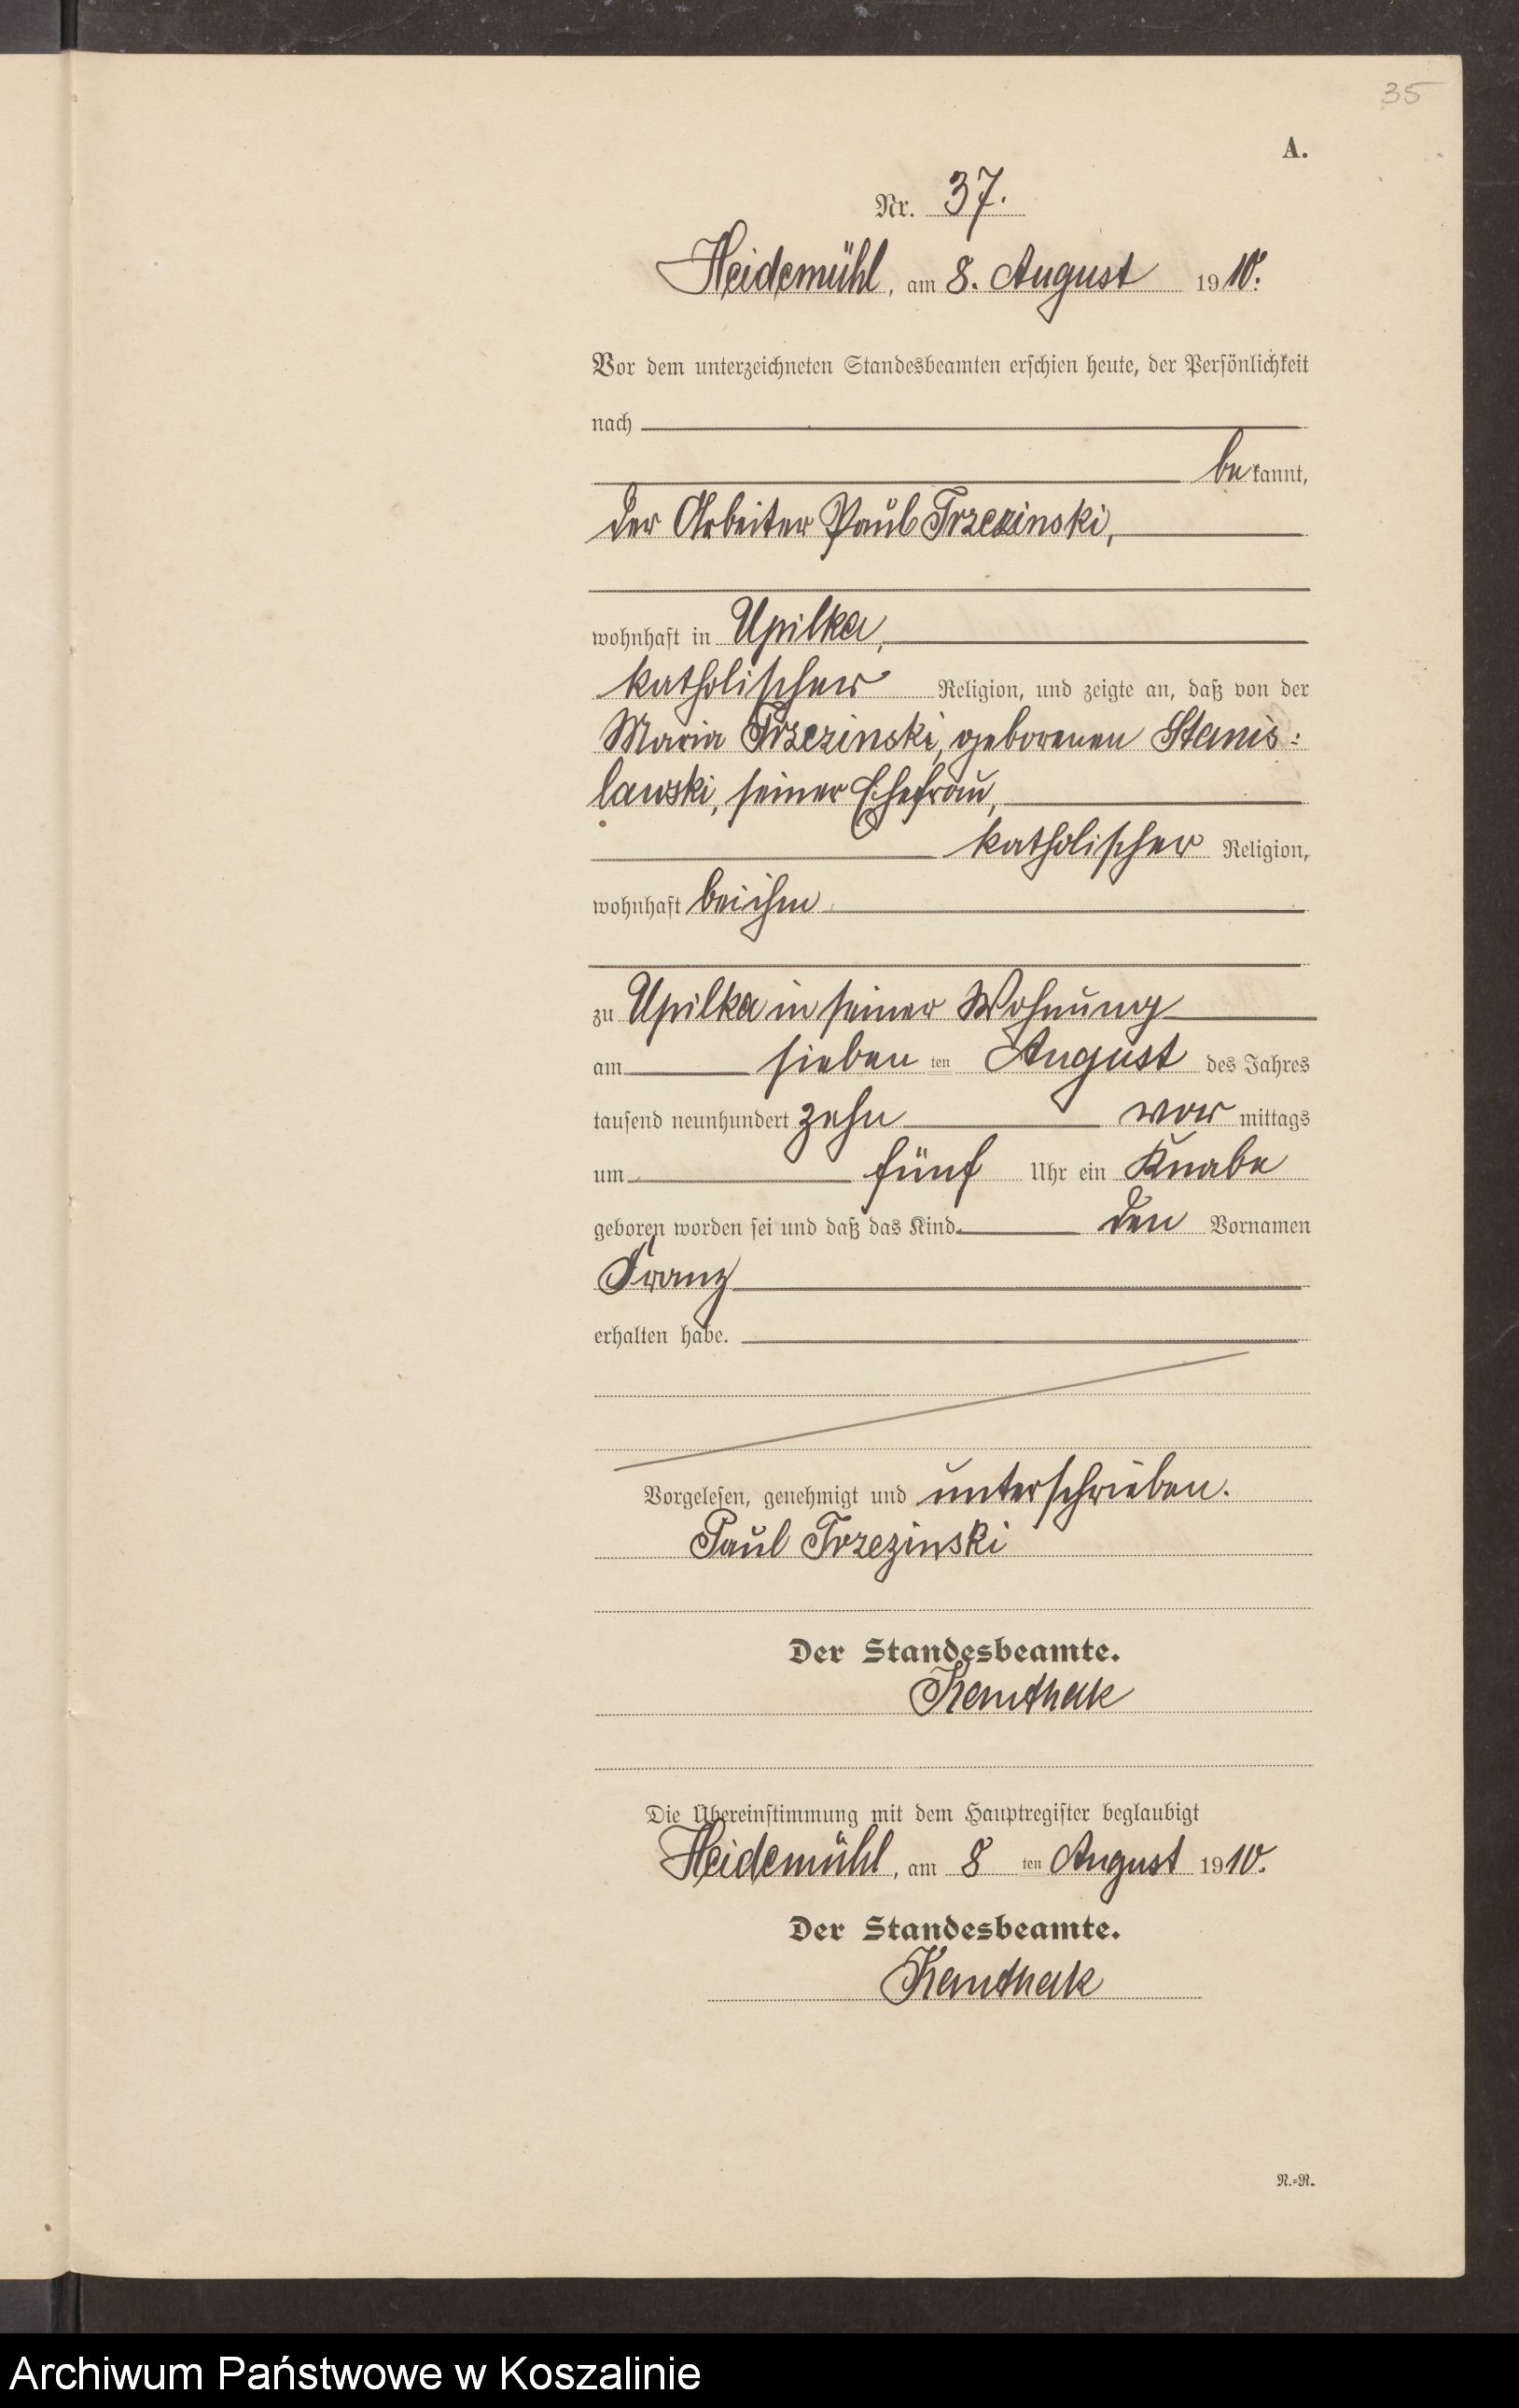 35
A.
Nr. 37.
Heidemühl, am 8. August 1910.
Vor dem unterzeichneten Standesbeamten erschien heute, der Persönlichkeit
nach
bekannt,
der Arbeiter Paul Trzezinski,
wohnhaft in Upilka,
katholischer Religion, und zeigte an, daß von der
Maria Trzezinski, geborenen Stanis=
lawski, seiner Ehefrau,
katholischer Religion,
wohnhaft bei ihm
zu Upilka in seiner Wohnung
am sieben ten August des Jahres
tausend neunhundert zehn vor mittags
um fünf Uhr ein Knabe
geboren worden sei und daß das Kind den Vornamen
Franz
erhalten habe.
Vorgelesen, genehmigt und unterschrieben.
Paul Trzezinski
Der Standesbeamte.
Die Übereinstimmung mit dem Hauptregister beglaubigt
Heidemühl, am 8 ten August 1910.
Der Standesbeamte.
N.=R.
Archiwum Państwowe w Koszalinie